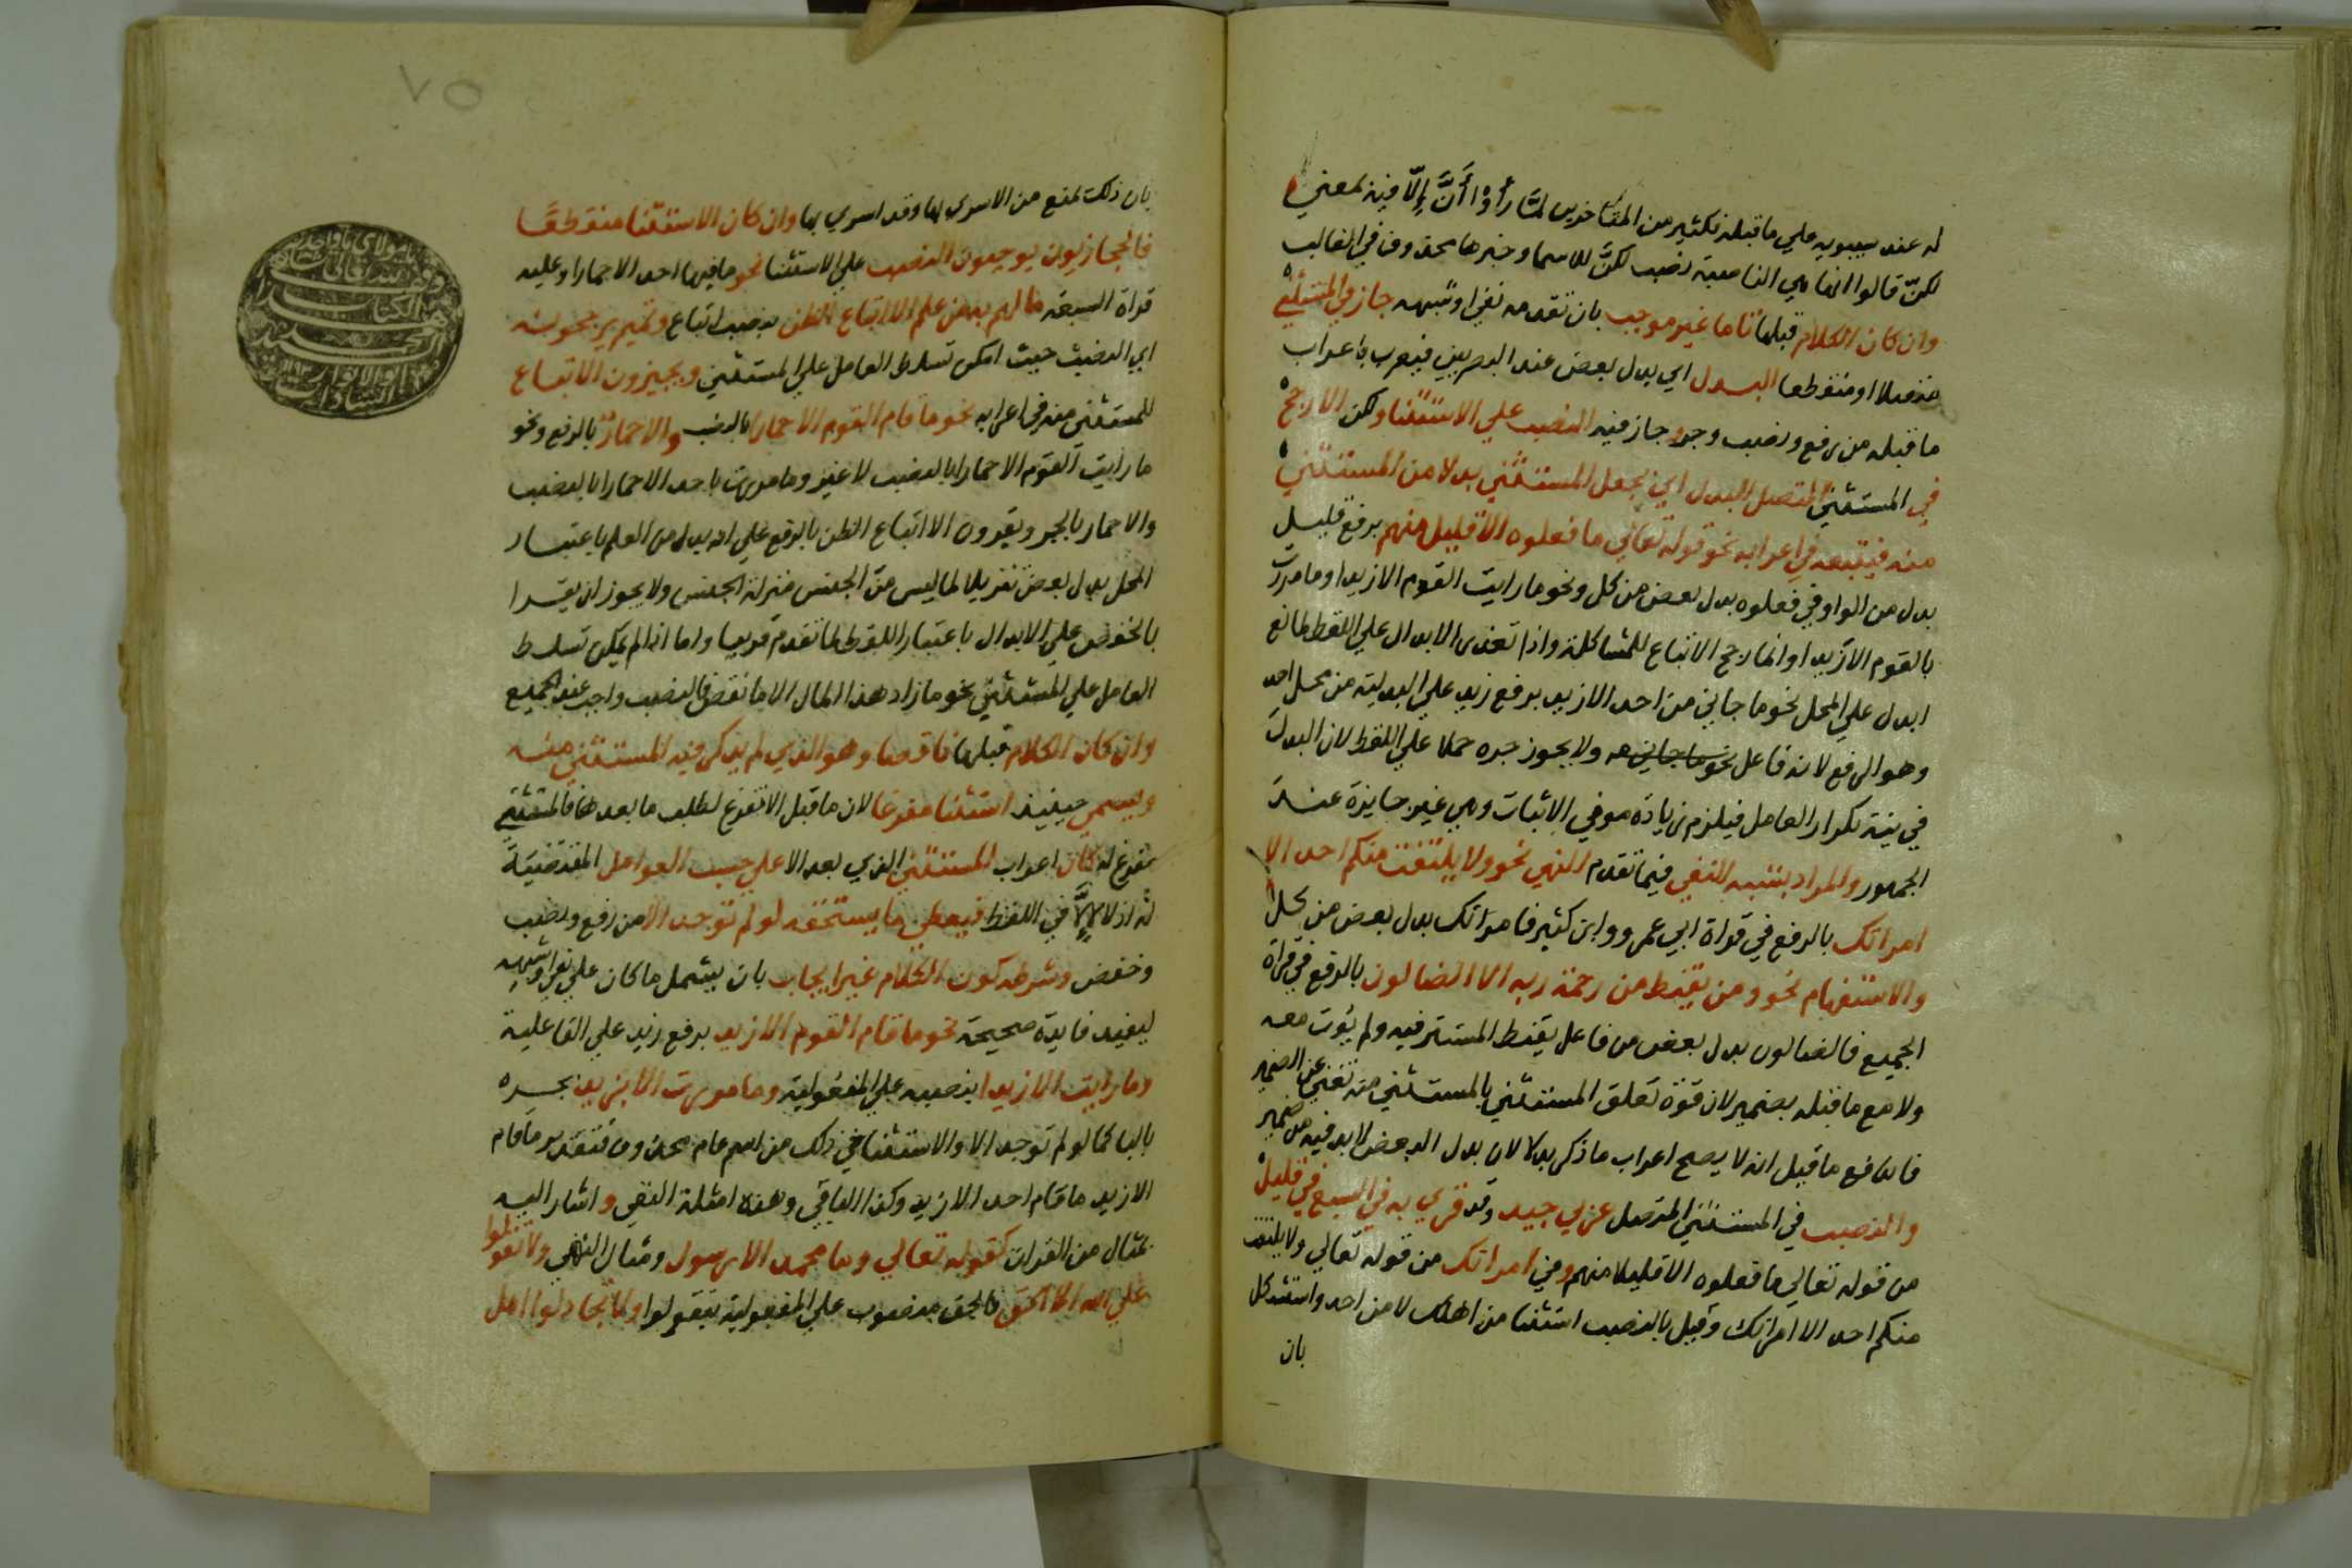 له عند سيبويه علي ما قبله لكثير من المتاخرين لمّا رأوْا أنَّ إلّا فيه بمعني
لكنّ قالوا انها هي الناصبة نصب لكنّ للاسما وخبرها محذوف في الغالب
وان كان الكلام قبلها تاما غير موجب بان تقدمه نفي او شبهه جاز في المستثني
متصلا او منقطعا البدل اي بدل بعض عند البصريين فيعرب باعراب
ما قبله من رفع ونصب وجر وجاز فيه النصب علي الاستثنا ولكن الارجح
في المستثني المتصل البدل اي يجعل المستثني بدلا من المستثني
منه فيتبعه في اعرابه نحو قوله تعالي ما فعلوه الا قليل منهم برفع قليل
بدل من الواو في فعلوه بدل بعض من كل ونحو ما رايت القوم الا زيدا وما مررت
بالقوم الا زيدا وانما رجح الاتباع للمشاكلة واذا تعذر الابدال علي اللفظ لمانع
ابدل علي المحل نحو ما جاني من احد الا زيد برفع زيد علي البدلية من محل احد
وهو الرفع لانه فاعل نحو ما جاني ولا يجوز جره حملا علي اللفظ لان البدل
في نية تكرار العامل فيلزم زيادة من في الاثبات وهي غير جايزة عند
الجمهور والمراد بشبه النفي فيما تقدم النهي نحو ولا يلتفت منكم احد الا
امراتك بالرفع في قراة ابي عمرو وابن كثير فامراتك بدل بعض من كل
والاستفهام نحو ومن يقنط من رحمة ربه الا الضالون بالرفع في قراة
الجميع فالضالون بدل بعض من فاعل يقنط المستتر فيه ولم يؤت معه
ولا مع ما قبله بضمير لان قوة تعلق المستثني بالمستثني منه تغني عن الضمير
فاندفع ما قيل انه لا يصح اعراب ما ذكر بدلا لان بدل البعض لا بد فيه من ضمير
والنصب في المستثني المتصل عربي جيد وقد قري به في السبع في قليل
من قوله تعالي ما فعلوه الا قليلا منهم وفي امراتك من قوله تعالي ولا يلتفت
منكم احد الا امراتك وقيل بالنصب استثنا من اهلك لا من احد واستشكل
بان
٧٥
بان ذلك يمنع من الاسري بها وقد اسري بها وان كان الاستثنا منقطعًا
فالحجازيون يوجبون النصب علي الاستثنا نحو ما فيها احد الا حمارا وعليه
قراة السبعة ما لهم به من علم الا اتباع الظن بنصب اتباع وتميم يرجحونه
اي النصب حيث امكن تسلط العامل علي المستثني ويجيزون الاتباع
للمستثني منه في اعرابه نحو ما قام القوم الا حمارا بالنصب والا حمارٌ بالرفع ونحو
ما رايت القوم الا حمارا بالنصب لا غير وما مررت باحد الا حمارا بالنصب
والا حمار بالجر ويقرون الا اتباع الظن بالرفع علي انه بدل من العلم باعتبار
المحل بدل بعض تنزيلا لما ليس من الجنس منزلة الجنس ولا يجوز ان يقرا
بالخفض علي الابدال باعتبار اللفظ لما تقدم قريبا واما اذا لم يمكن تسلط
العامل علي المستثني نحو ما زاد هذا المال الا ما نقص فالنصب واجب عند الجميع
وان كان الكلام قبلها ناقصا وهو الذي لم يذكر فيه المستثني منه
ويسمي حينيذ استثنا مفرغا لان ما قبل الا تفرغ لطلب ما بعدها فالمستثني
مفرغ له كان اعراب المستثني الذي بعد الا علي حسب العوامل المقتضية
له اذ لا إلاَّ في اللفظ فيعطي ما يستحقه لو لم توجد الا من رفع ونصب
وخفض وشرطه كون الكلام غير ايجاب بان يشمل ما كان علي نفي او شبهه
ليفيد فايدة صحيحة نحو ما قام القوم الا زيد برفع زيد علي الفاعلية
وما رايت الا زيدا بنصبه علي المفعولية وما مررت الا بزيد بجره
بالبا كما لو لم توجد الا والاستثنا في ذلك من اسم عام محذوف فتقدير ما قام
الا زيد ما قام احد الا زيد وكذا الباقي وهذه امثلة النفي واشار اليه
بمثال من القران كقوله تعالي وما محمد الا رسول ومثال النهي ولا تقولوا
علي الله الا الحق فالحق منصوب علي المفعولية بتقولوا ولا تجادلوا اهل